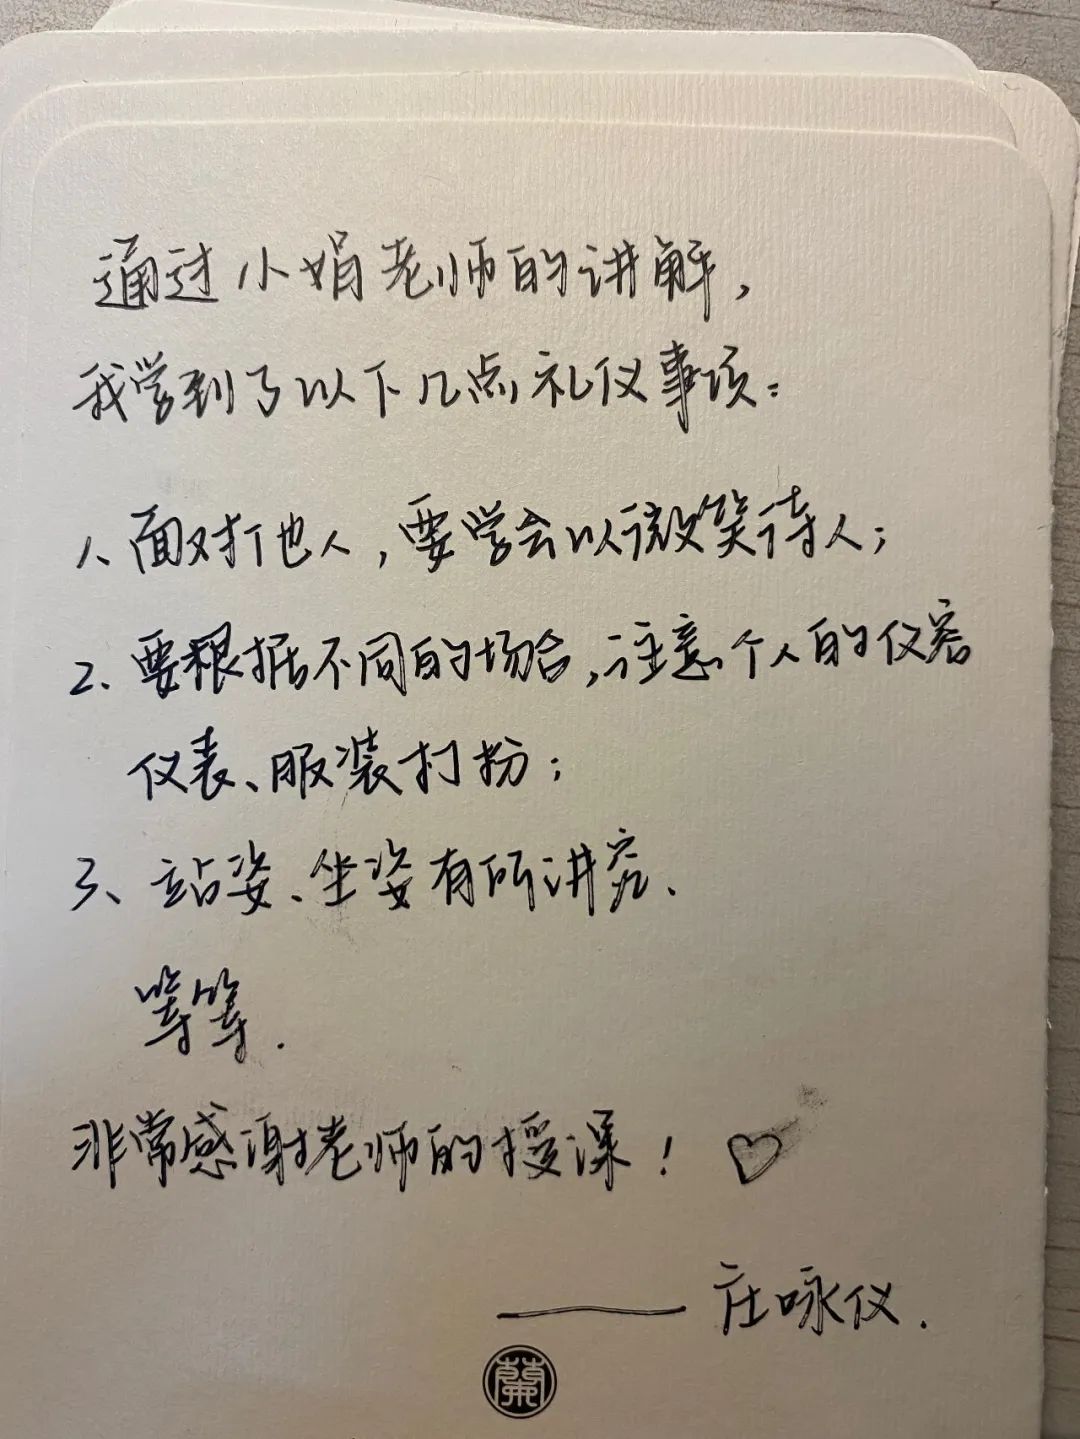 通过小娟老师的讲解，
我学到了以下几点礼仪事项：
1、面对他人，要学会以微笑待人；
2、要根据不同的场合，注意个人的仪容
仪表、服装打扮；
3、站姿、坐姿有所讲究、
等等.
非常感谢老师的授课！♡
—— 庄咏仪.
蘭